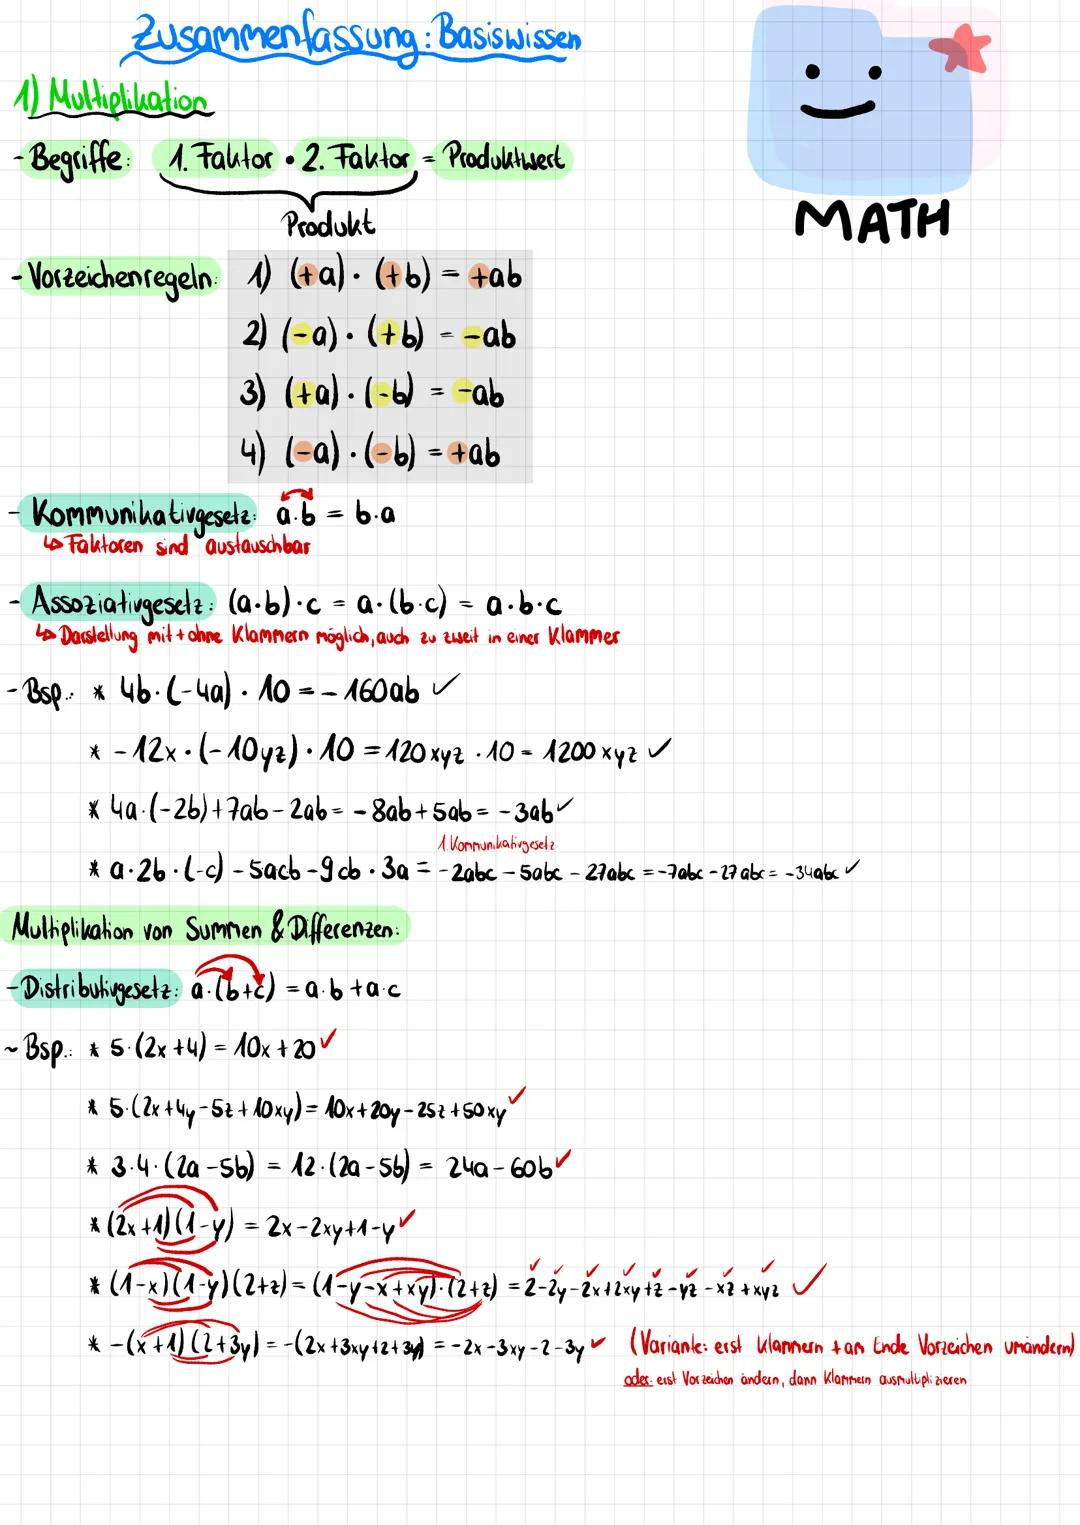 Zusammenfassung: Basiswissen
1) Multiplikation
- Begriffe: 1. Faktor • 2. Faktor = Produktwert
Produkt
MATH
- Vorzeichenregeln: 1) (+a) · (+b) = +ab
2) (-a) · (+b) = -ab
3) (+a) · (-b) = -ab
4) (-a) · (-b) = +ab
- Kommunikativgesetz: a·b = b·a
↳ Faktoren sind austauschbar
- Assoziativgesetz: (a·b)·c = a·(b·c) = a·b·c
↳ Darstellung mit + ohne Klammern möglich, auch zu zweit in einer Klammer
- Bsp.: * 4b·(-4a) · 10 = - 160ab ✓
* -12x · (-10yz) · 10 = 120xyz · 10 = 1200xyz ✓
* 4a·(-2b)+7ab-2ab = -8ab+5ab = -3ab ✓
1. Kommunikativgesetz
* a·2b·(-c) - 5acb - 9cb · 3a = -2abc - 5abc - 27abc = -7abc - 27abc = -34abc ✓
Multiplikation von Summen & Differenzen:
- Distributivgesetz: a·(b+c) = a·b + a·c
~ Bsp.: * 5·(2x+4) = 10x + 20 ✓
* 5·(2x+4y-5z+10xy) = 10x+20y-25z+50xy ✓
* 3·4·(2a-5b) = 12·(2a-5b) = 24a-60b ✓
* (2x+1)(1-y) = 2x-2xy+1-y ✓
* (1-x)(1-y)(2+z) = (1-y-x+xy)·(2+z) = 2-2y-2x+2xy+z-yz-xz+xyz ✓
* -(x+1)(2+3y) = -(2x+3xy+2+3y) = -2x-3xy-2-3y ✓ (Variante: erst Klammern + am Ende Vorzeichen umändern)
oder: erst Vorzeichen ändern, dann Klammern ausmultiplizieren